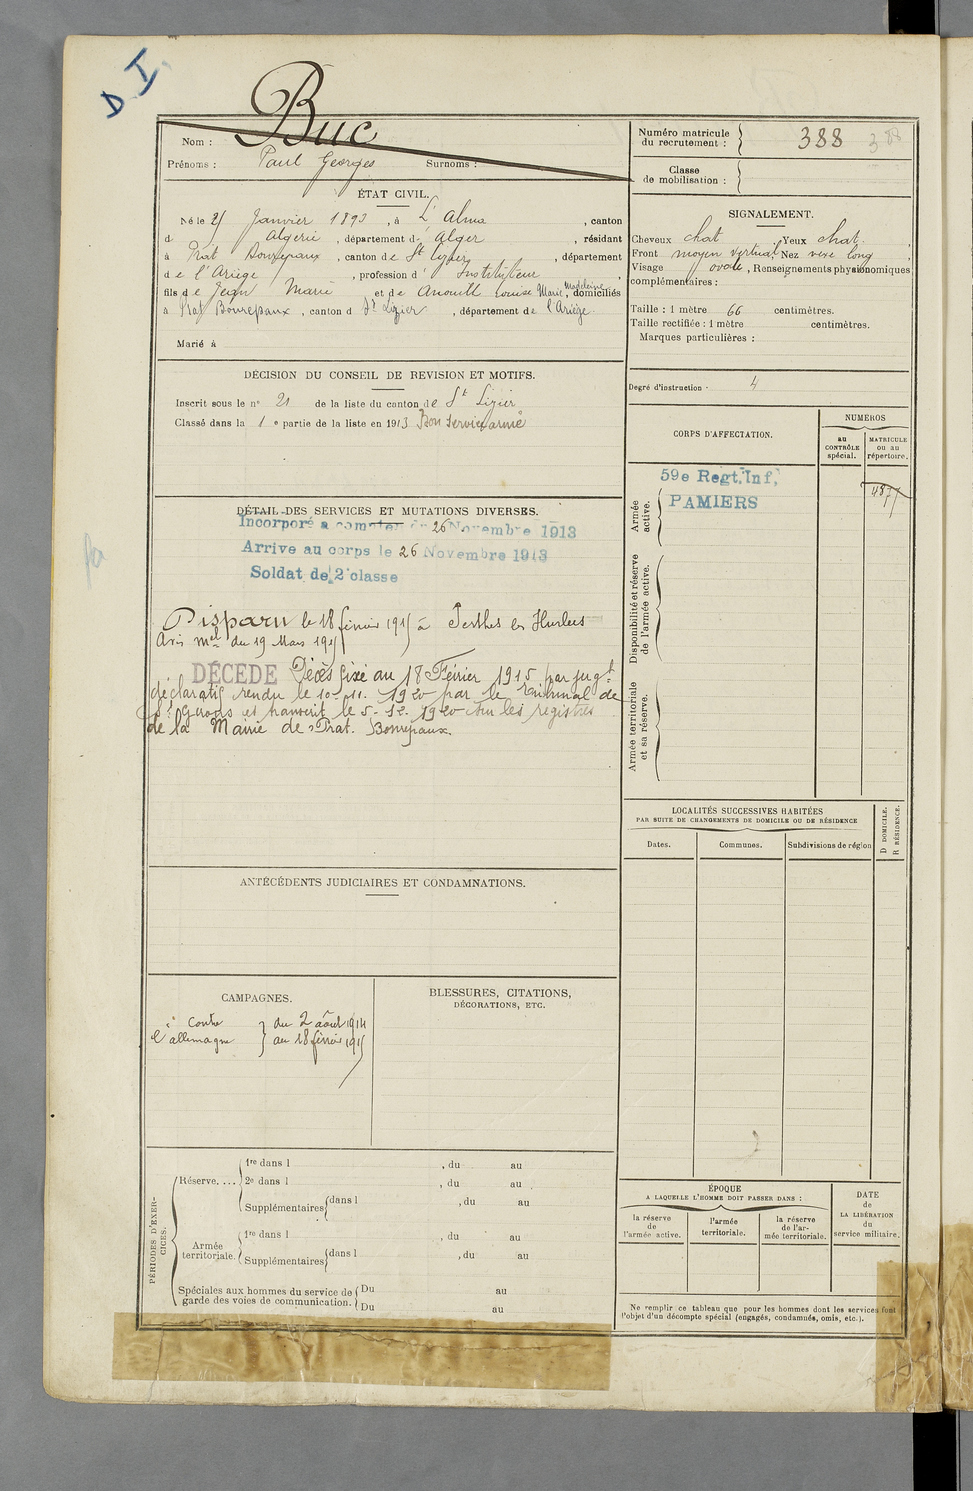 D I
Buc
Nom :
Prénoms : Paul Georges Surnoms :
ÉTAT CIVIL.
Né le 25 Janvier 1893, à L'Alma, canton
d Algérie, département d' Alger, résidant
à Prat Bonrepaux, canton de St Lizier, département
de l'Ariège, profession d' Instituteur
fils de Jean Marie et de Anouilh Louise Marie Madeleine, domiciliés
à Prat Bonrepaux, canton d St Lizier, département de l'Ariège.
Marié à
DÉCISION DU CONSEIL DE REVISION ET MOTIFS.
Inscrit sous le n° 21 de la liste du canton de St Lizier
Classé dans la 1e partie de la liste en 1913 Bon service armé
DÉTAIL DES SERVICES ET MUTATIONS DIVERSES.
Incorporé à compter du 26 Novembre 1913
Arrive au corps le 26 Novembre 1913
Soldat de 2e classe
Disparu le 18 février 1915 à Perthes les Hurlus
Avis mel du 19 Mars 1915
DÉCÉDÉ Décès fixé au 18 Février 1915 par jugt
déclaratif rendu le 10-11. 1920 par le Tribunal de
St Girons et transcrit le 5-12. 1920 sur les registres
de la Mairie de Prat. Bonrepaux.
ANTÉCÉDENTS JUDICIAIRES ET CONDAMNATIONS.
CAMPAGNES.
Contre du 2 août 1914
l'allemagne au 18 février 1915
BLESSURES, CITATIONS,
DÉCORATIONS, ETC.
PÉRIODES D'EXERCICES.
Réserve....
1re dans l , du au
2e dans l , du au
Supplémentaires dans l , du au
Armée territoriale.
1re dans l , du au
Supplémentaires dans l , du au
Spéciales aux hommes du service de garde des voies de communication.
Du au
Du au
Numéro matricule
du recrutement : 388 388
Classe
de mobilisation :
SIGNALEMENT.
Cheveux chat. Yeux chat.,
Front moyen vertical, Nez vexe long,
Visage ovale, Renseignements physionomiques
complémentaires :
Taille : 1 mètre 66 centimètres.
Taille rectifiée : 1 mètre centimètres.
Marques particulières :
Degré d'instruction · 4
CORPS D'AFFECTATION.
NUMÉROS
au
CONTRÔLE
spécial.
MATRICULE
ou au
répertoire.
Armée
active.
59e Regt. Inf,
PAMIERS
Disponibilité et réserve
de l'armée active.
Armée territoriale
et sa réserve.
LOCALITÉS SUCCESSIVES HABITÉES
PAR SUITE DE CHANGEMENTS DE DOMICILE OU DE RÉSIDENCE
Dates. Communes. Subdivisions de région
D DOMICILE.
R RÉSIDENCE.
ÉPOQUE
A LAQUELLE L'HOMME DOIT PASSER DANS :
la réserve
de
l'armée active.
l'armée
territoriale.
la réserve
de l'ar-
mée territoriale.
DATE
de
LA LIBÉRATION
du
service militaire.
Ne remplir ce tableau que pour les hommes dont les services font
l'objet d'un décompte spécial (engagés, condamnés, omis, etc.).